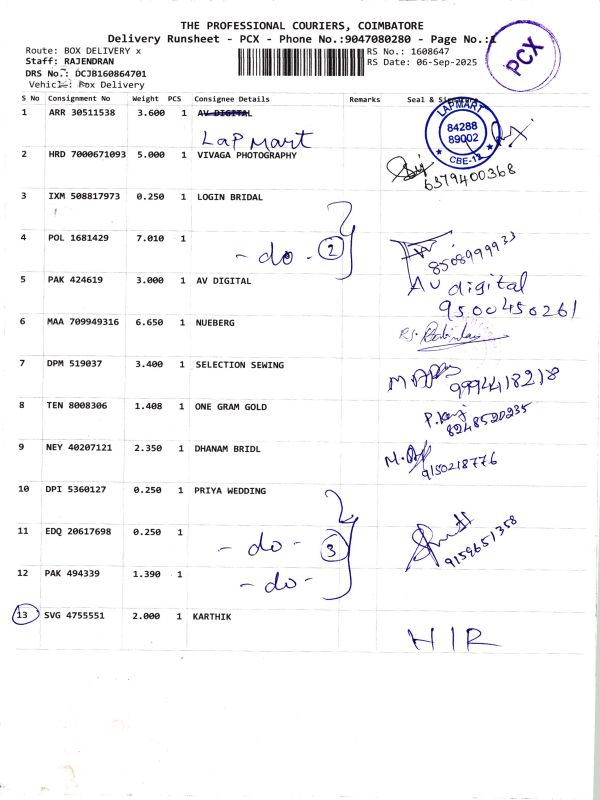 THE PROFESSIONAL COURIERS, COIMBATORE
Delivery Runsheet - PCX - Phone No.:9047080280 - Page No.:1
PCX
Route: BOX DELIVERY x
RS No.: 1608647
Staff: RAJENDRAN
RS Date: 06-Sep-2025
DRS No.: DCJB160864701
Vehicle: Box Delivery
S No Consignment No Weight PCS Consignee Details Remarks Seal & Signature
1 ARR 30511538 3.600 1 AV DIGITAL
Lap Mart
LAPMART
84288
89002
CBE-12
2 HRD 7000671093 5.000 1 VIVAGA PHOTOGRAPHY
6379400368
3 IXM 508817973 0.250 1 LOGIN BRIDAL
4 POL 1681429 7.010 1
- do - 2
8508999933
5 PAK 424619 3.000 1 AV DIGITAL
AV digital
9500450261
6 MAA 709949316 6.650 1 NUEBERG
7 DPM 519037 3.400 1 SELECTION SEWING
9994418218
8 TEN 8008306 1.408 1 ONE GRAM GOLD
8248520235
9 NEY 40207121 2.350 1 DHANAM BRIDL
9150218776
10 DPI 5360127 0.250 1 PRIYA WEDDING
11 EDQ 20617698 0.250 1
- do - 3
9159651358
12 PAK 494339 1.390 1
- do -
13 SVG 4755551 2.000 1 KARTHIK
HIR